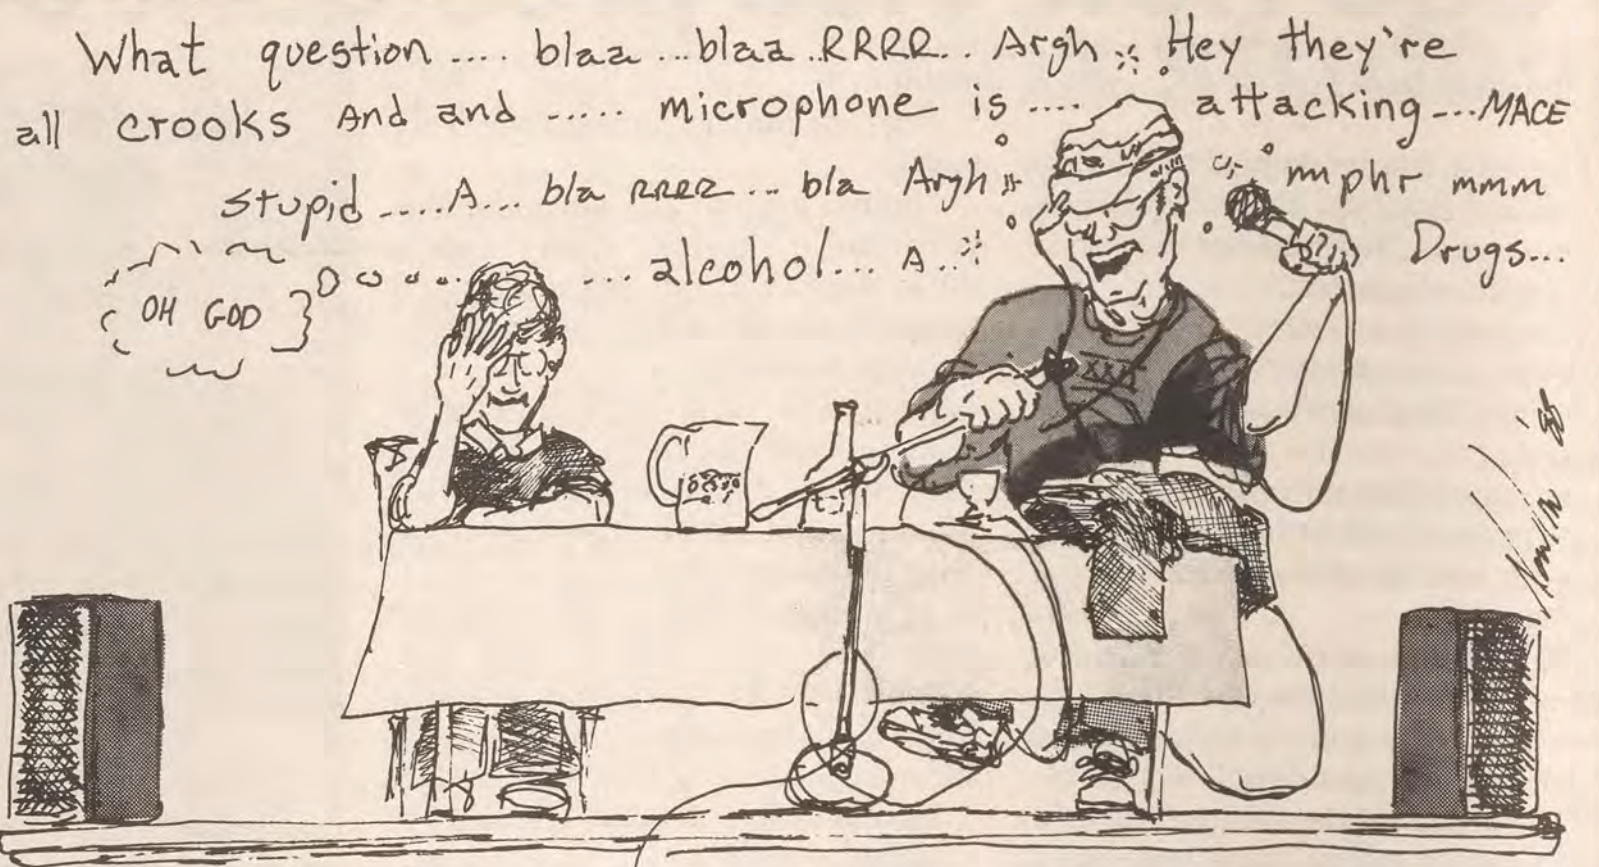 What question .... blaa ... blaa .. RRRR .. Argh Hey they're
all crooks And and ..... microphone is .... attacking ... MACE
stupid .... A... bla RRRR ... bla Argh mmphr mmm
... alcohol... A.. Drugs...
OH GOD
XXX